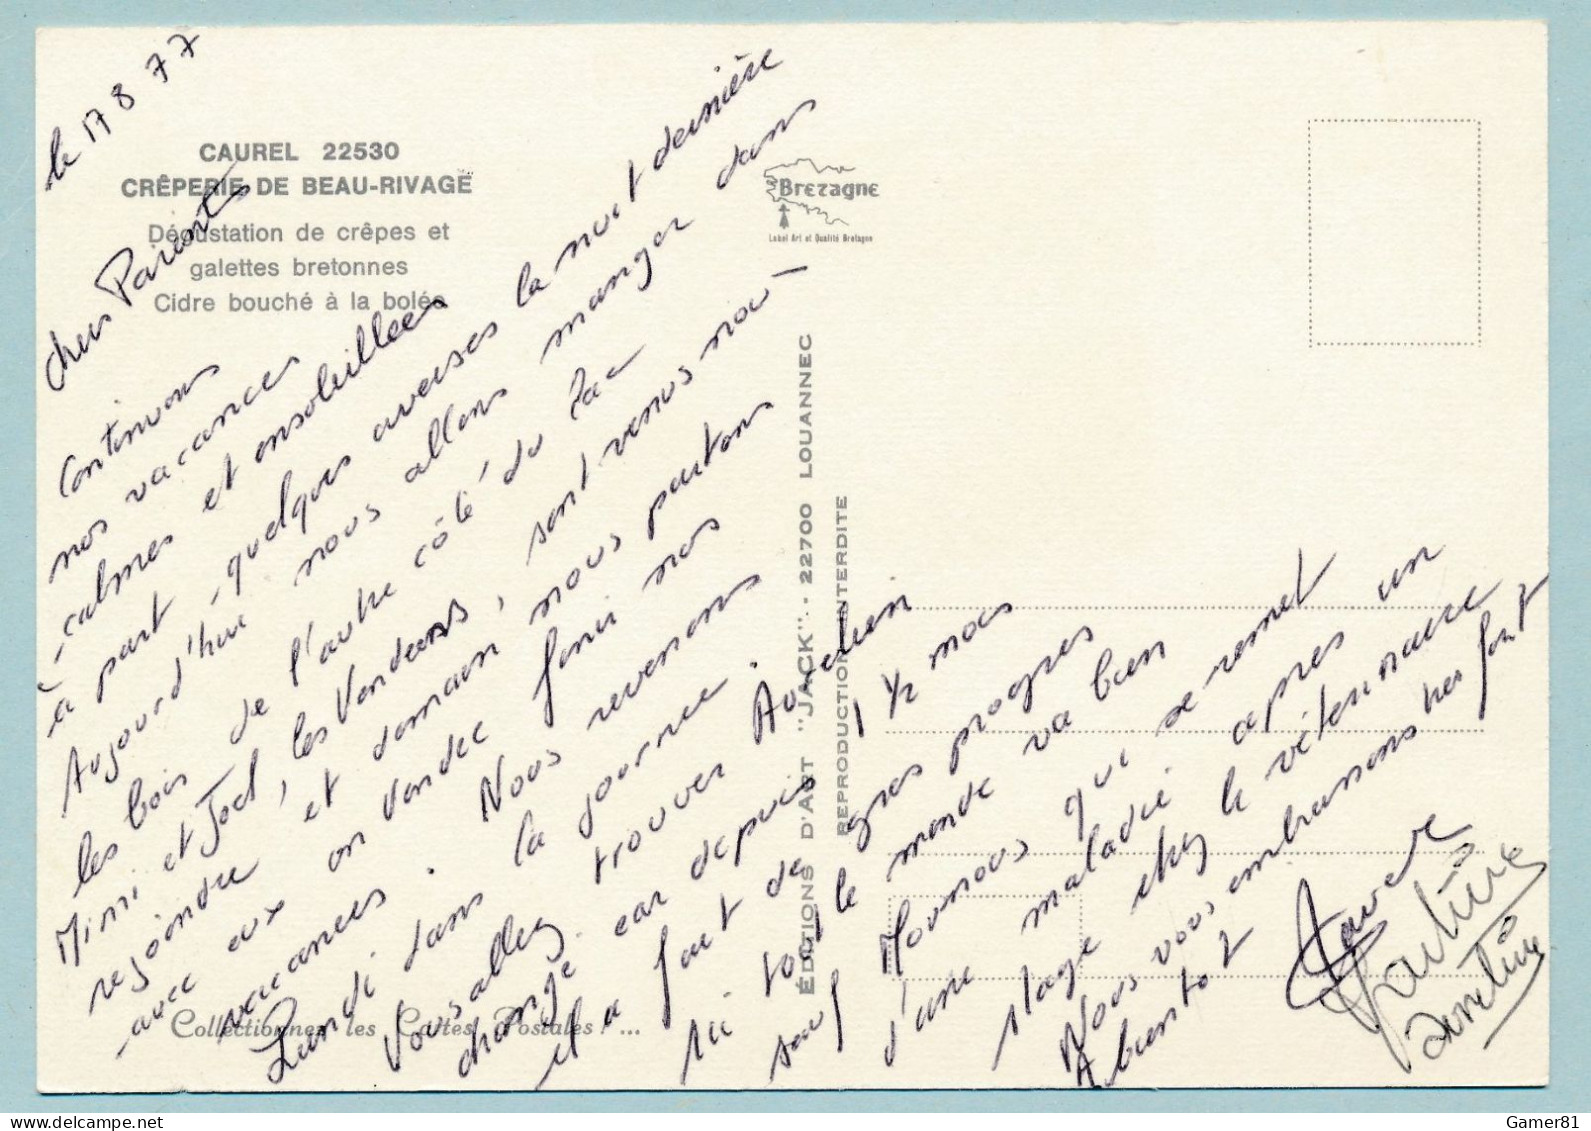 le 17 8 77
CAUREL 22530
CRÊPERIE DE BEAU-RIVAGE
Dégustation de crêpes et
galettes bretonnes
Cidre bouché à la bolée
Chers Parents
Continuons
nos vacances
calmes et ensoleillées
à part quelques averses la nuit dernière
Aujourd'hui nous allons manger dans
les bois de l'autre côté du lac
Mimi et Joel, les Vendeens, sont venus nou-
rejoindre, et demain nous partons
avec eux en Vendee finir nos
vacances. Nous revenons
Lundi dans la journee.
Vous allez trouver Aurelien
changé car depuis 1 1/2 mois
il a fait de gros progres
ici tout le monde va bien
sauf Mounous qui se remet
d'une maladie apres un
stage chez le vétérinaire
Nous vous embrassons tres fort
A bientot
Brezagne
Label Art et Qualité Bretagne
ÉDITIONS D'ART "JACK" - 22700 LOUANNEC
REPRODUCTION INTERDITE
Collectionnez les Cartes Postales ! ...
delcampe.net
Gamer81